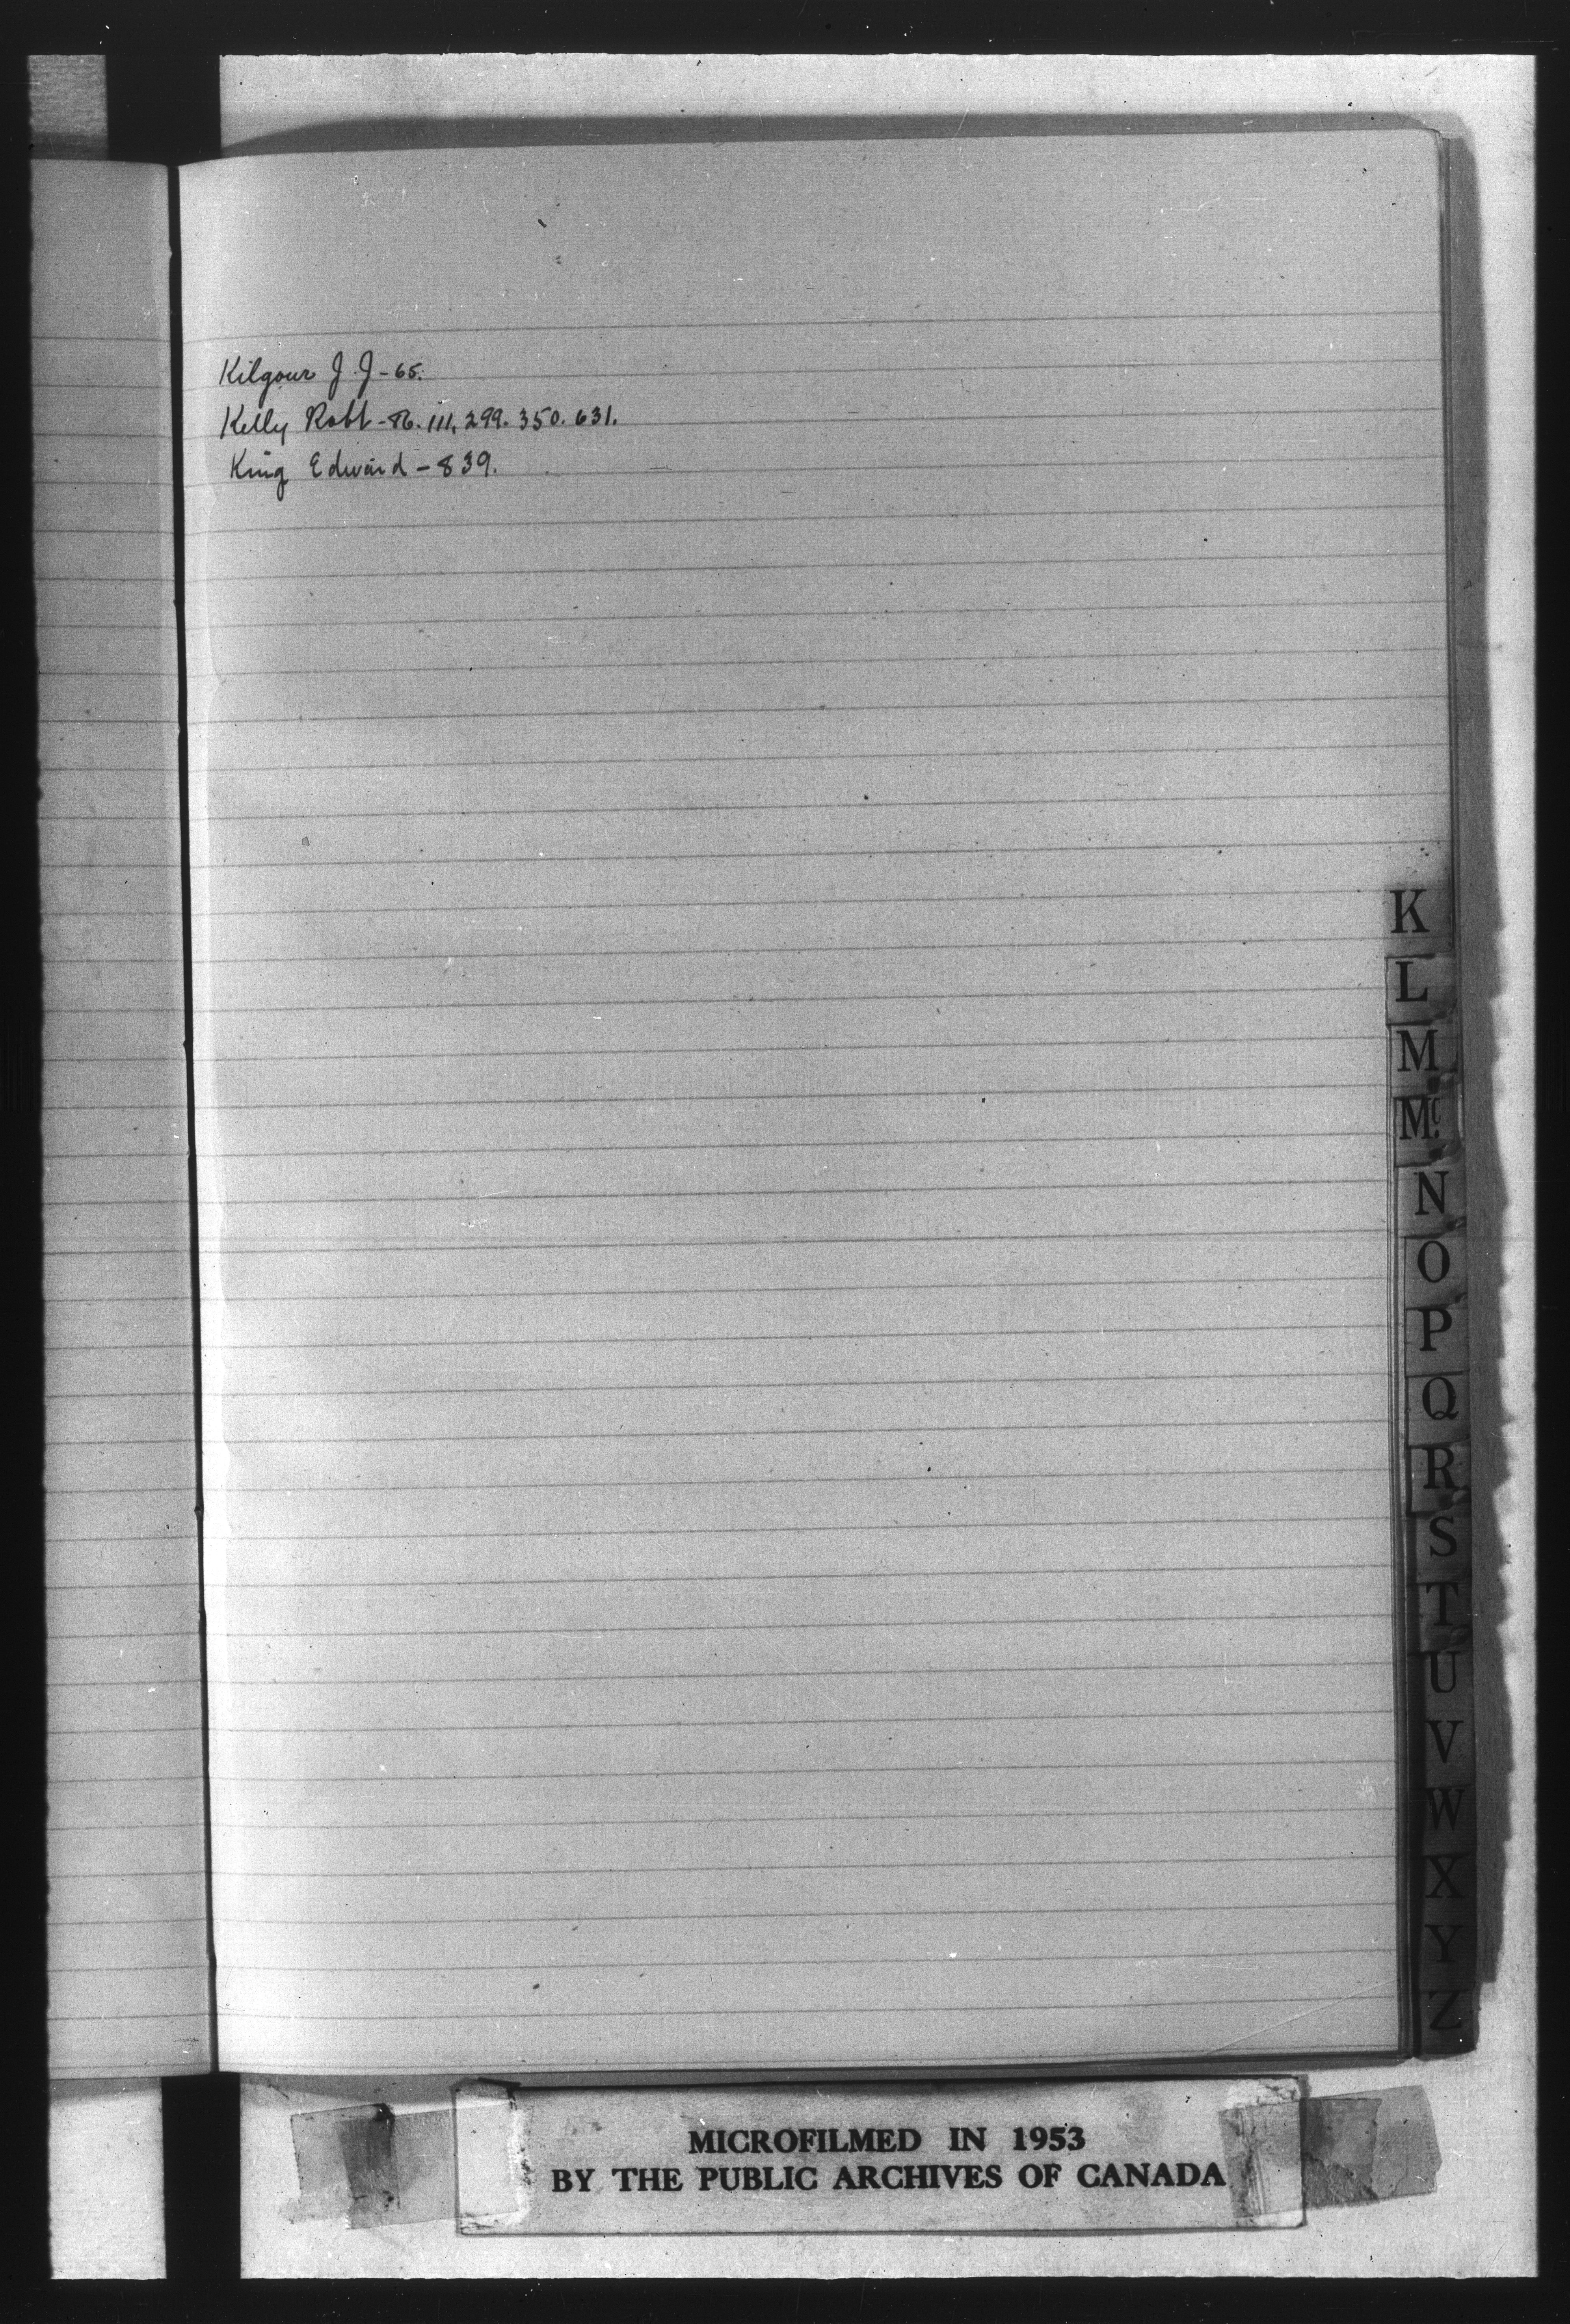 Kilgour J. J - 65.
Kelly Robt - 86. 111, 299. 350. 631.
King Edward - 839.
K
L
M
Mc.
N
O
P
Q
R
S
T
U
V
W
X
Y
Z
MICROFILMED IN 1953
BY THE PUBLIC ARCHIVES OF CANADA